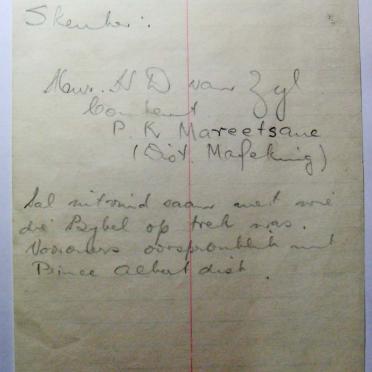 Skenker:
Mnr. H D van Zyl
P. K Mareetsane
(Dist. Mafeking)
Sal uitvind saam met wie
die Bybel op trek was.
Voorouers oorspronklik uit
Prince Albert distr.